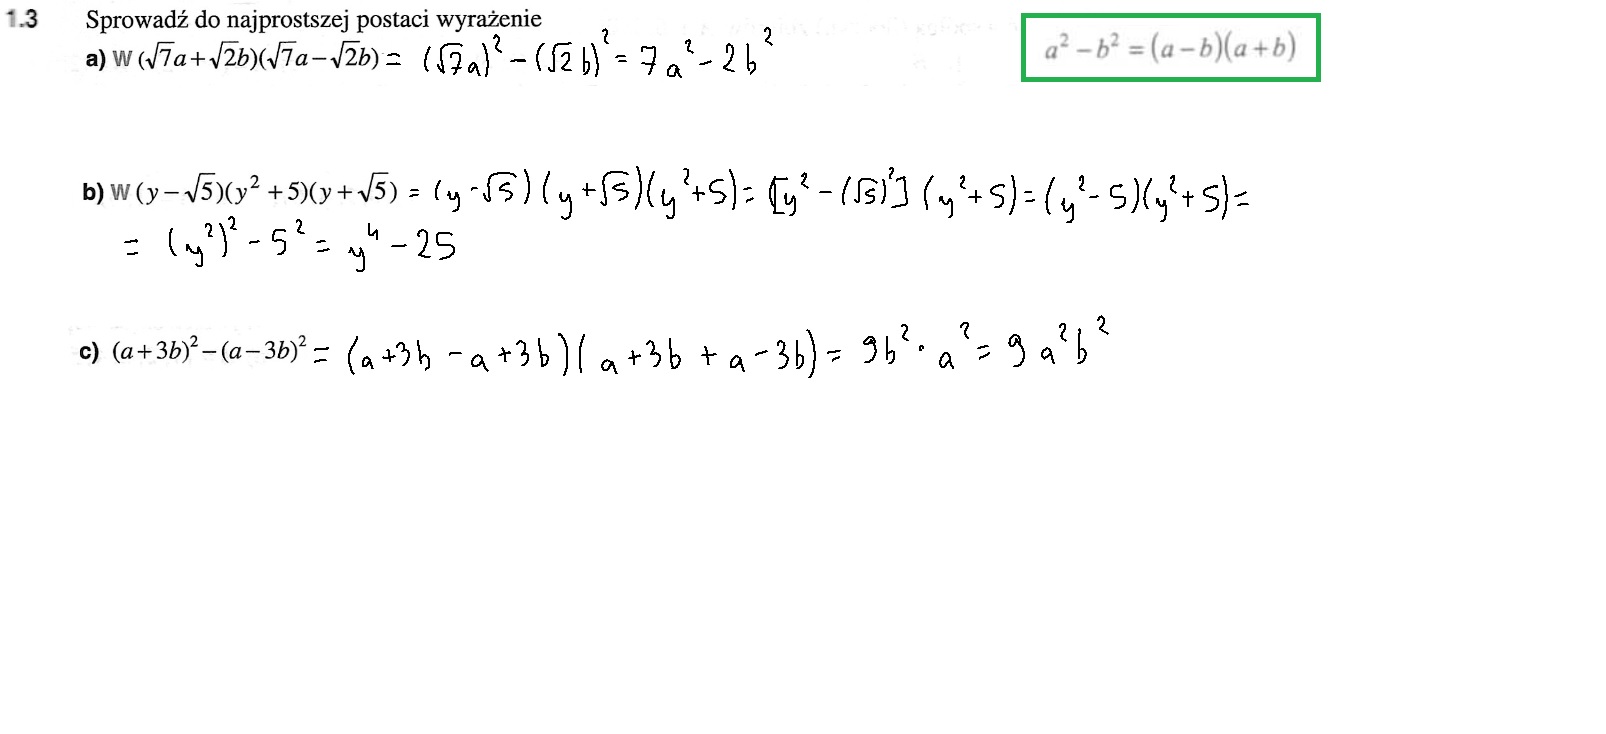 1.3 Sprowadź do najprostszej postaci wyrażenie
a² − b² = (a − b)(a + b)
a) W (√7a + √2b)(√7a − √2b) = (√7a)² − (√2b)² = 7a² − 2b²
b) W (y − √5)(y² + 5)(y + √5) = (y − √5)(y + √5)(y² + 5) = [y² − (√5)²](y² + 5) = (y² − 5)(y² + 5) =
= (y²)² − 5² = y⁴ − 25
c) (a + 3b)² − (a − 3b)² = (a + 3b − a + 3b)(a + 3b + a − 3b) = 9b² · a² = 9a²b²